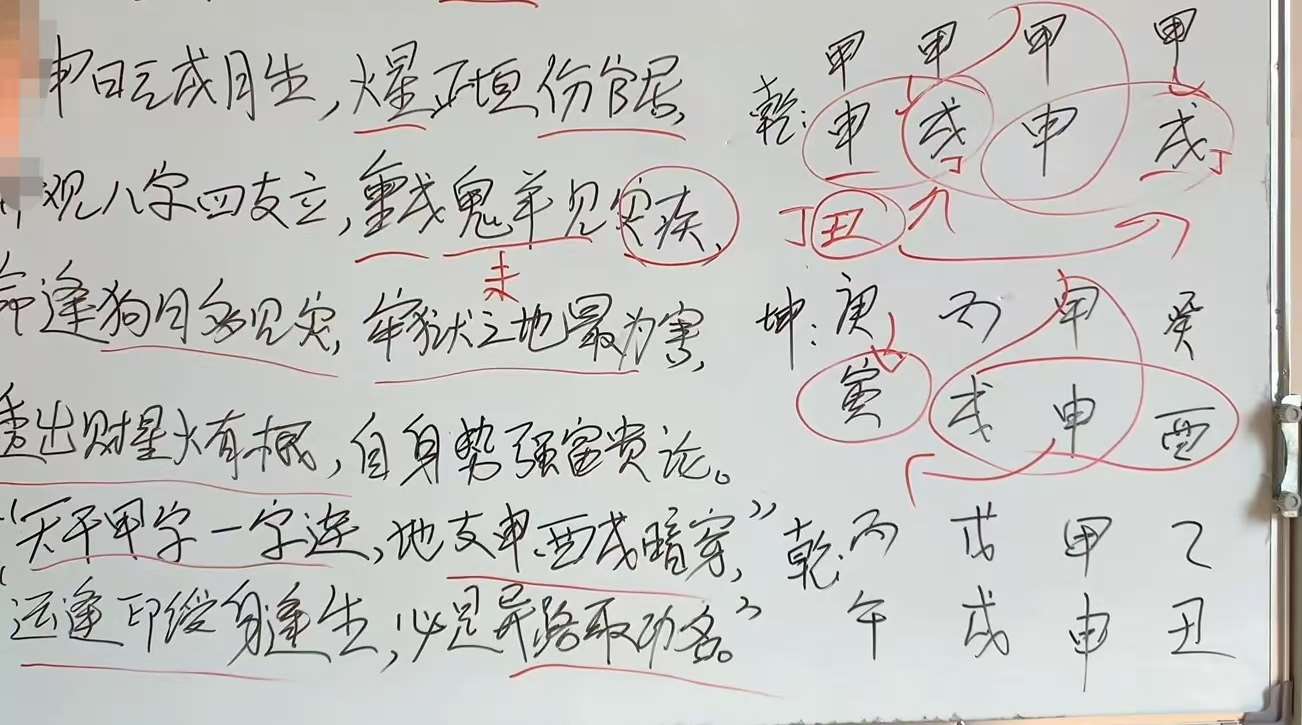 申日云戌月生，火星正垣份官居，
观八字四支立，重戌鬼羊见灾疾，
未
命逢狗月多见灾，牢狱之地最为害，
透出财星火有概，自身势强富贵论。
“天干甲字一字连，地支申酉戌暗穿，”
运逢印绶身逢生，必见异路取功名。”
甲 甲 甲 甲
乾：申 戌 申 戌
丁 丁
丁丑
坤：庚 丙 甲 癸
寅 戌 申 酉
乾：丙 戊 甲 乙
午 戌 申 丑